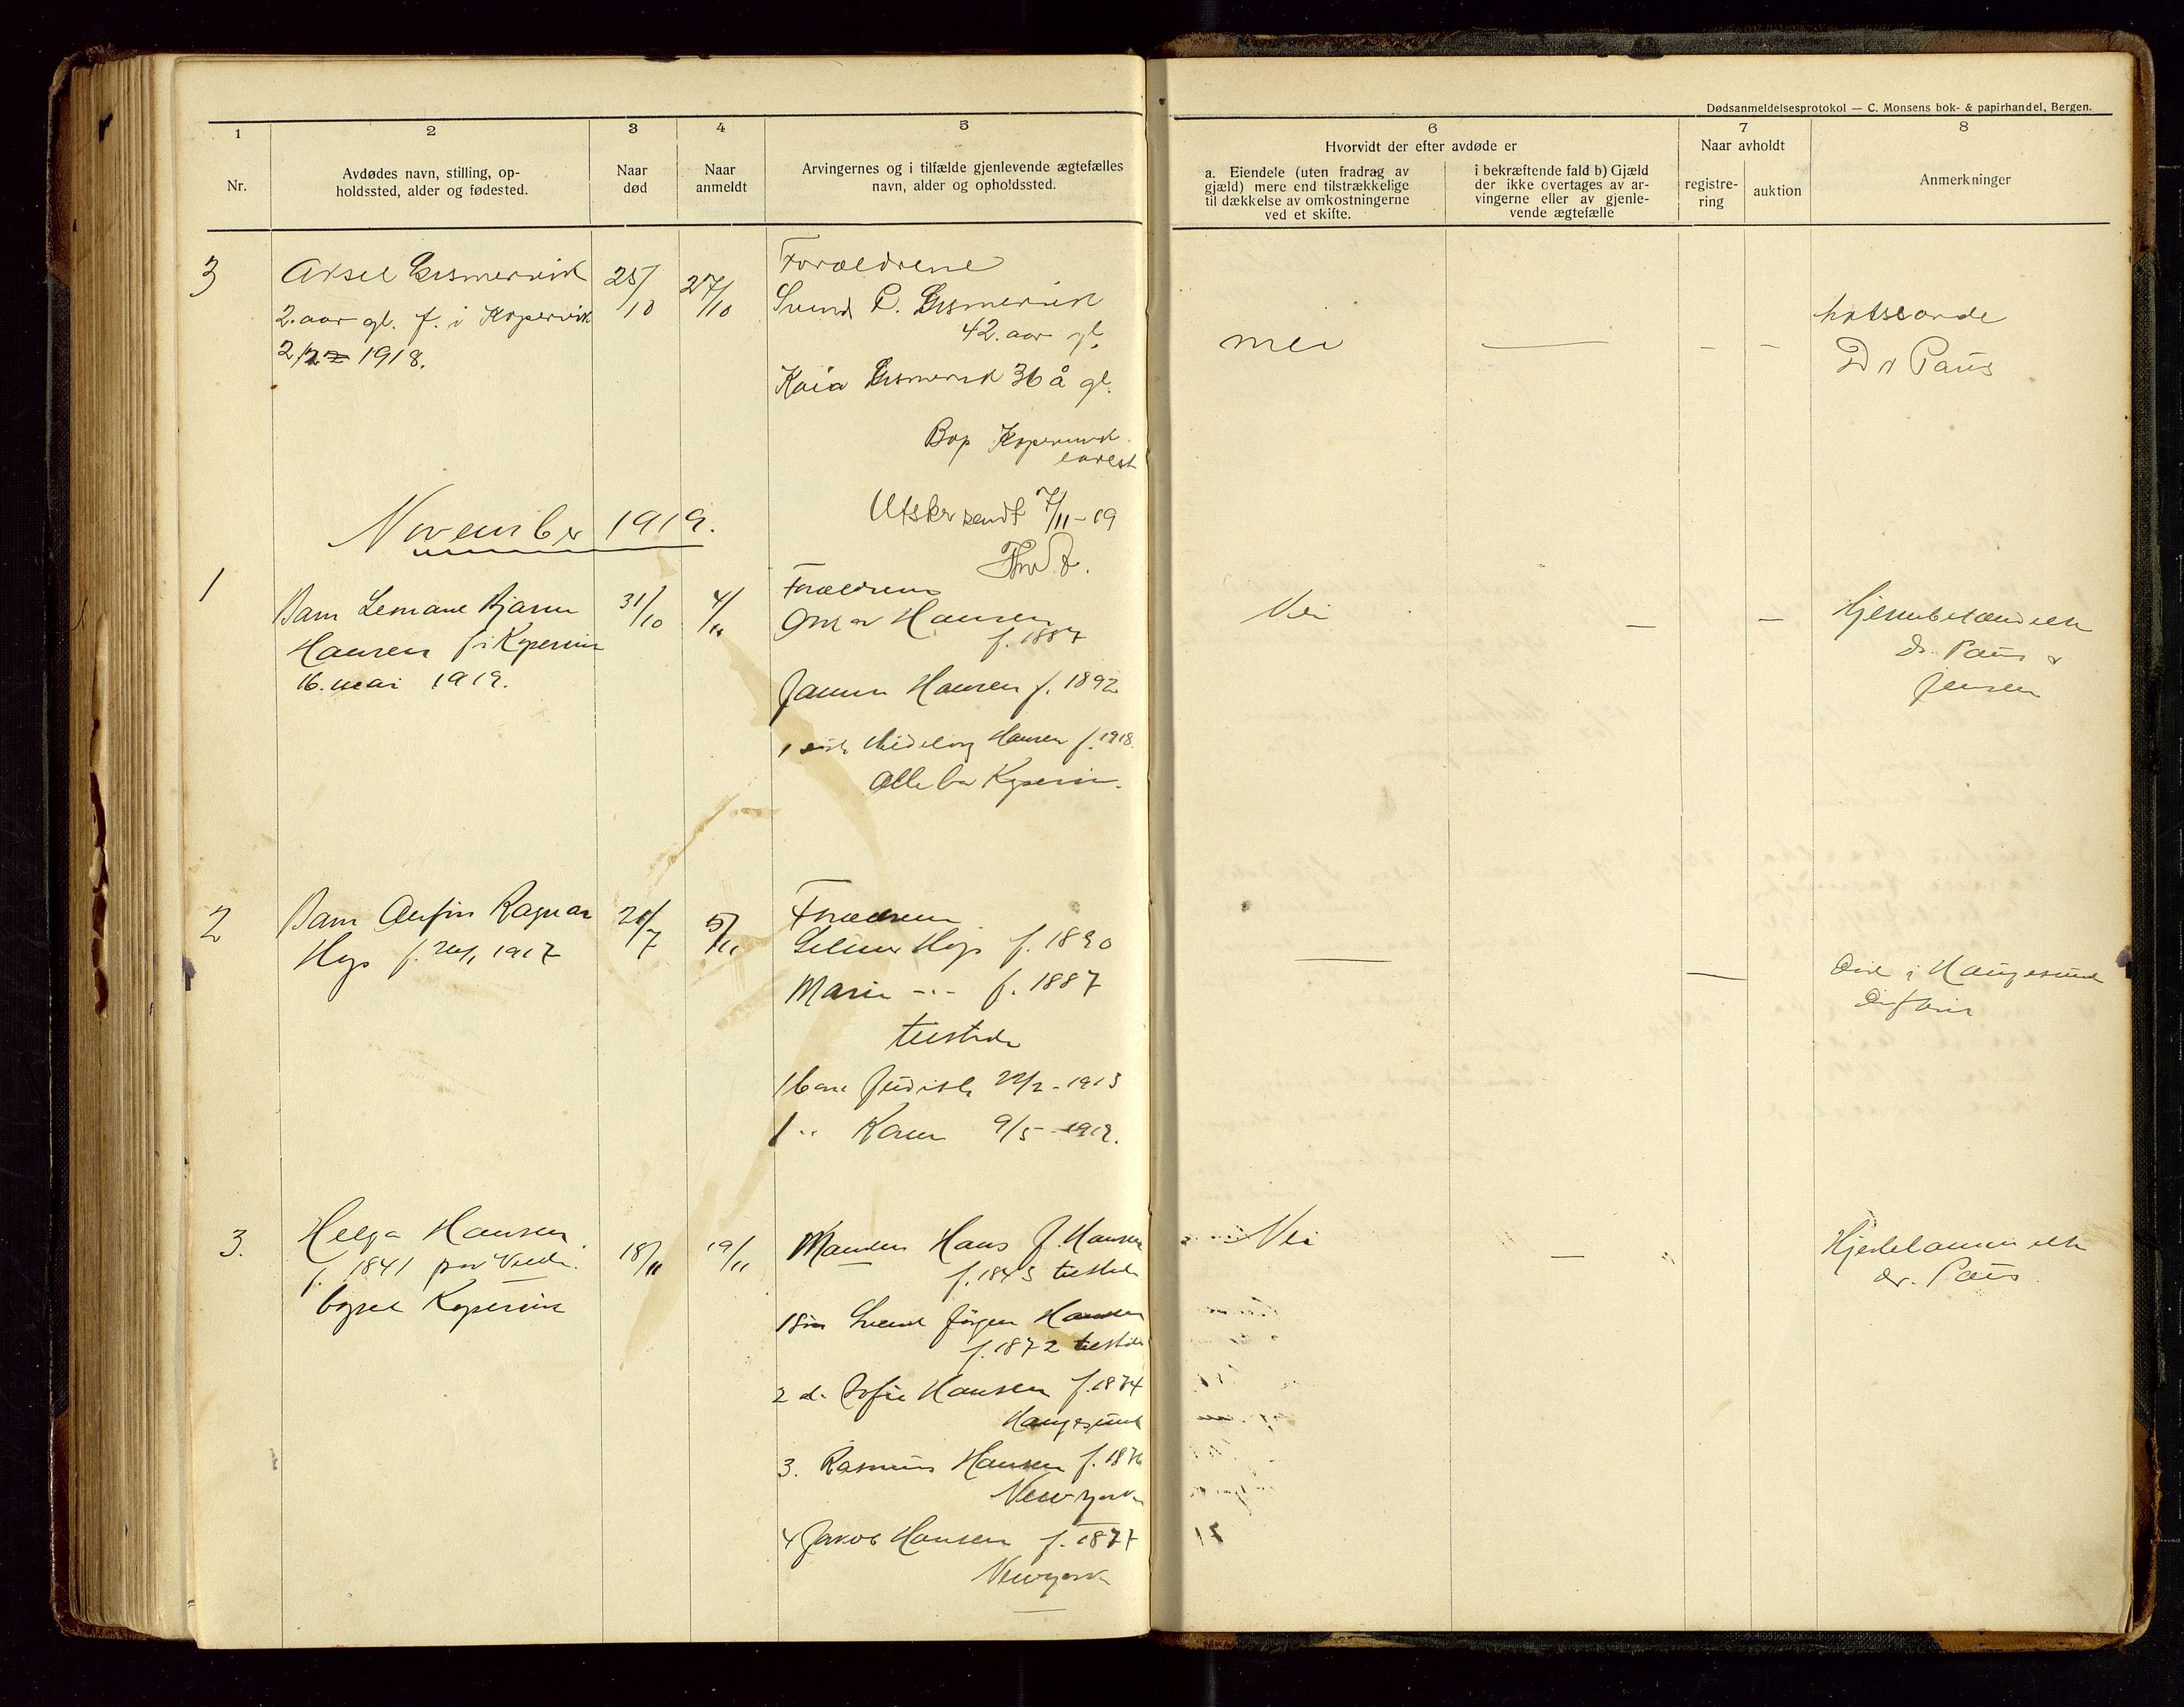 Dødsanmeldelsesprotokol — C. Monsens bok- & papirhandel, Bergen.
1
2
3
4
5
6
7
8
Nr.
Avdødes navn, stilling, op-
holdssted, alder og fødested.
Naar
død
Naar
anmeldt
Arvingernes og i tilfælde gjenlevende ægtefælles
navn, alder og opholdssted.
Hvorvidt der efter avdøde er
a. Eiendele (uten fradrag av
gjæld) mere end tilstrækkelige
til dækkelse av omkostningerne
ved et skifte.
i bekræftende fald b) Gjæld
der ikke overtages av ar-
vingerne eller av gjenle-
vende ægtefælle
Naar avholdt
registre-
ring
auktion
Anmerkninger
3
Aksel
2. aar gl. f. i Kopervik
1918.
25/10
27/10
Forældrene
Svend
42. aar gl.
Kaia 36 å gl.
Bop Kopervik
nei
—
—
—
Dr Paus
Utskr sendt 7/11-19
November 1919.
1
Barn Bjarne
Hansen f i Kopervik
16. mai 1919.
31/10
4/11
Forældrene
Hansen
f. 1887
Hansen f. 1892
1 Hansen f. 1918.
Alle bor Kopervik.
Nei
—
—
Hjernebetændelse
Dr. Paus &
Jensen
2
Barn Anfin Ragnar
f. 1917
5/11
Forældrene
f. 1890
Marie -"- f. 1887
tilstede
1 barn Judith 22/2 - 1913
1 " Karen 9/5 - 1919.
—
—
Død i Haugesund
3.
Helga Hansen
f. 1841 paa
Kopervik
18/11
19/11
Manden Hans J. Hansen
f. 1843 tilstede
1 Søn Svend Jørgen Hansen
f. 1872 tilstede
2 d. Sofie Hansen f. 1874
Haugesund
3. Rasmus Hansen f. 1876
New york
4 Jakob Hansen f. 1877
Newyork
Nei
—
Hjertelammelse
dr. Paus